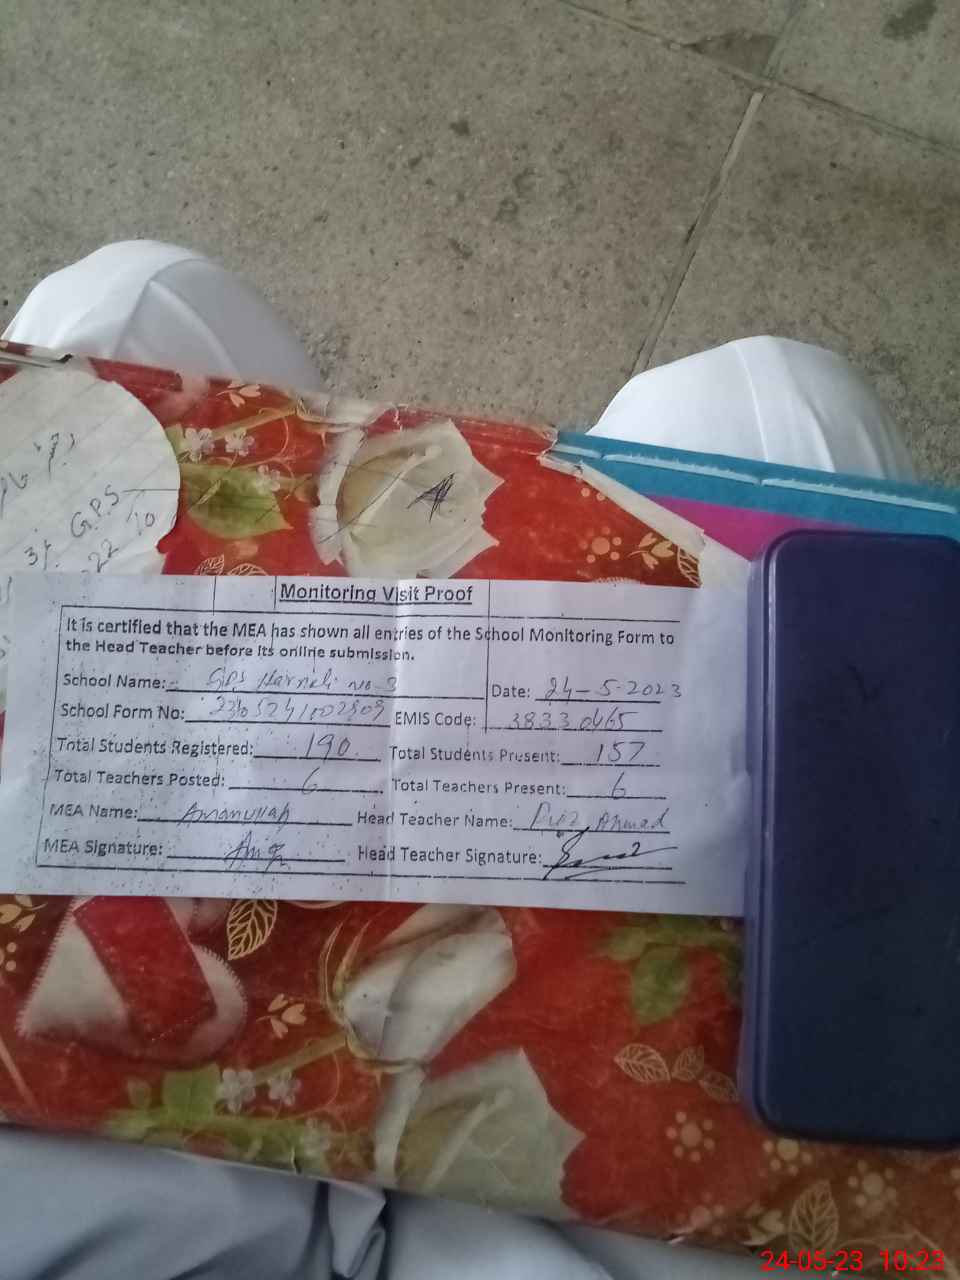 G.P.S
3/.
22
10
Monitoring Visit Proof
It is certified that the MEA has shown all entries of the School Monitoring Form to
the Head Teacher before its online submission.
School Name: GPS Harnoli No-3 Date: 24-5-2023
School Form No: EMIS Code: 38330465
Total Students Registered: 190 Total Students Present: 157
Total Teachers Posted: 6 Total Teachers Present: 6
MEA Name: Amanullah Head Teacher Name: Ahmad
MEA Signature: Head Teacher Signature:
24-05-23 10:23